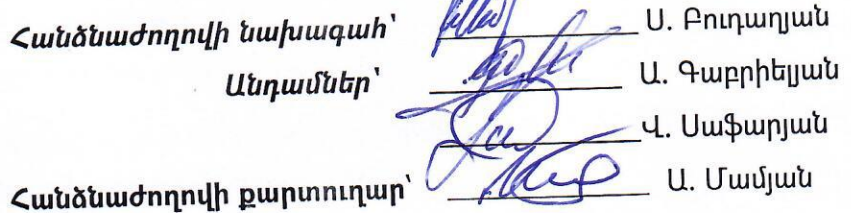 Հանձնաժողովի նախագահ՝ Ս. Բուդաղյան
Անդամներ՝ Ա. Գաբրիելյան
Վ. Սաֆարյան
Հանձնաժողովի քարտուղար՝ Ա. Մամյան